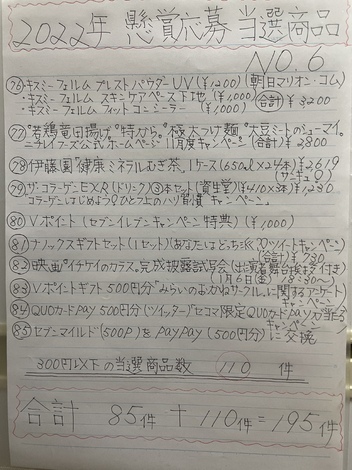 2022年 懸賞応募当選商品
NO.6
㊻ キスミーフェルム プレストパウダーUV(¥1,200) (朝日マリオン・コム)
・キスミーフェルム スキンケアベース下地 (¥1,000) 合計
・キスミーフェルム フィットコンシーラー (¥1,000) ¥3200
㊼ "若鶏竜田揚げ" "特から" "極太つけ麺" "大豆ミートのシューマイ"
ニチレイフーズ公式ホームページ 11月度キャンペーン(合計)¥2,800
㊽ 伊藤園"健康ミネラルむぎ茶" 1ケース(650ml×24本)¥2619
79 ザ・コラーゲンEXR(ドリンク)③本セット(資生堂)(¥410×3本)¥1,230
コラーゲンはじめようひとつ上のハリ習慣 キャンペーン
80 Vポイント(セブンイレブンキャンペーン特典)(¥1,000)
81 ナノックスギフトセット(1セット)(あなたはどっち派?ツイートキャンペーン)
(合計)¥730
82 映画"イチケイのカラス"完成披露試写会(出演者舞台挨拶付き)
(1月6日(金) 30〜)
83 Vポイントギフト500円分"みらいのおかねサークル"に関するアンケート
キャンペーン
84 QUOカードPAY500円分(ツイッター)セコマ限定QUOカードPAY
キャンペーン
85 セブンマイルド(500P)をPAYPAY(500円分)に交流
300円以下の当選商品数 110 件
合計 85件 + 110件 = 195件